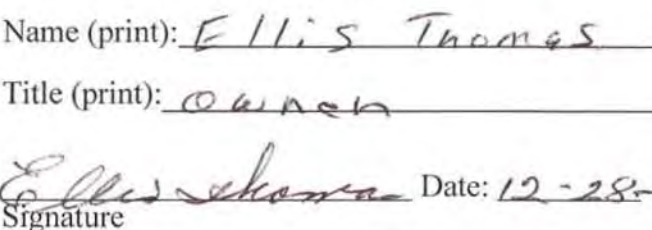 Name (print): Ellis Thomas
Title (print): Owner
Ellis Thomas Date: 12-28-
Signature